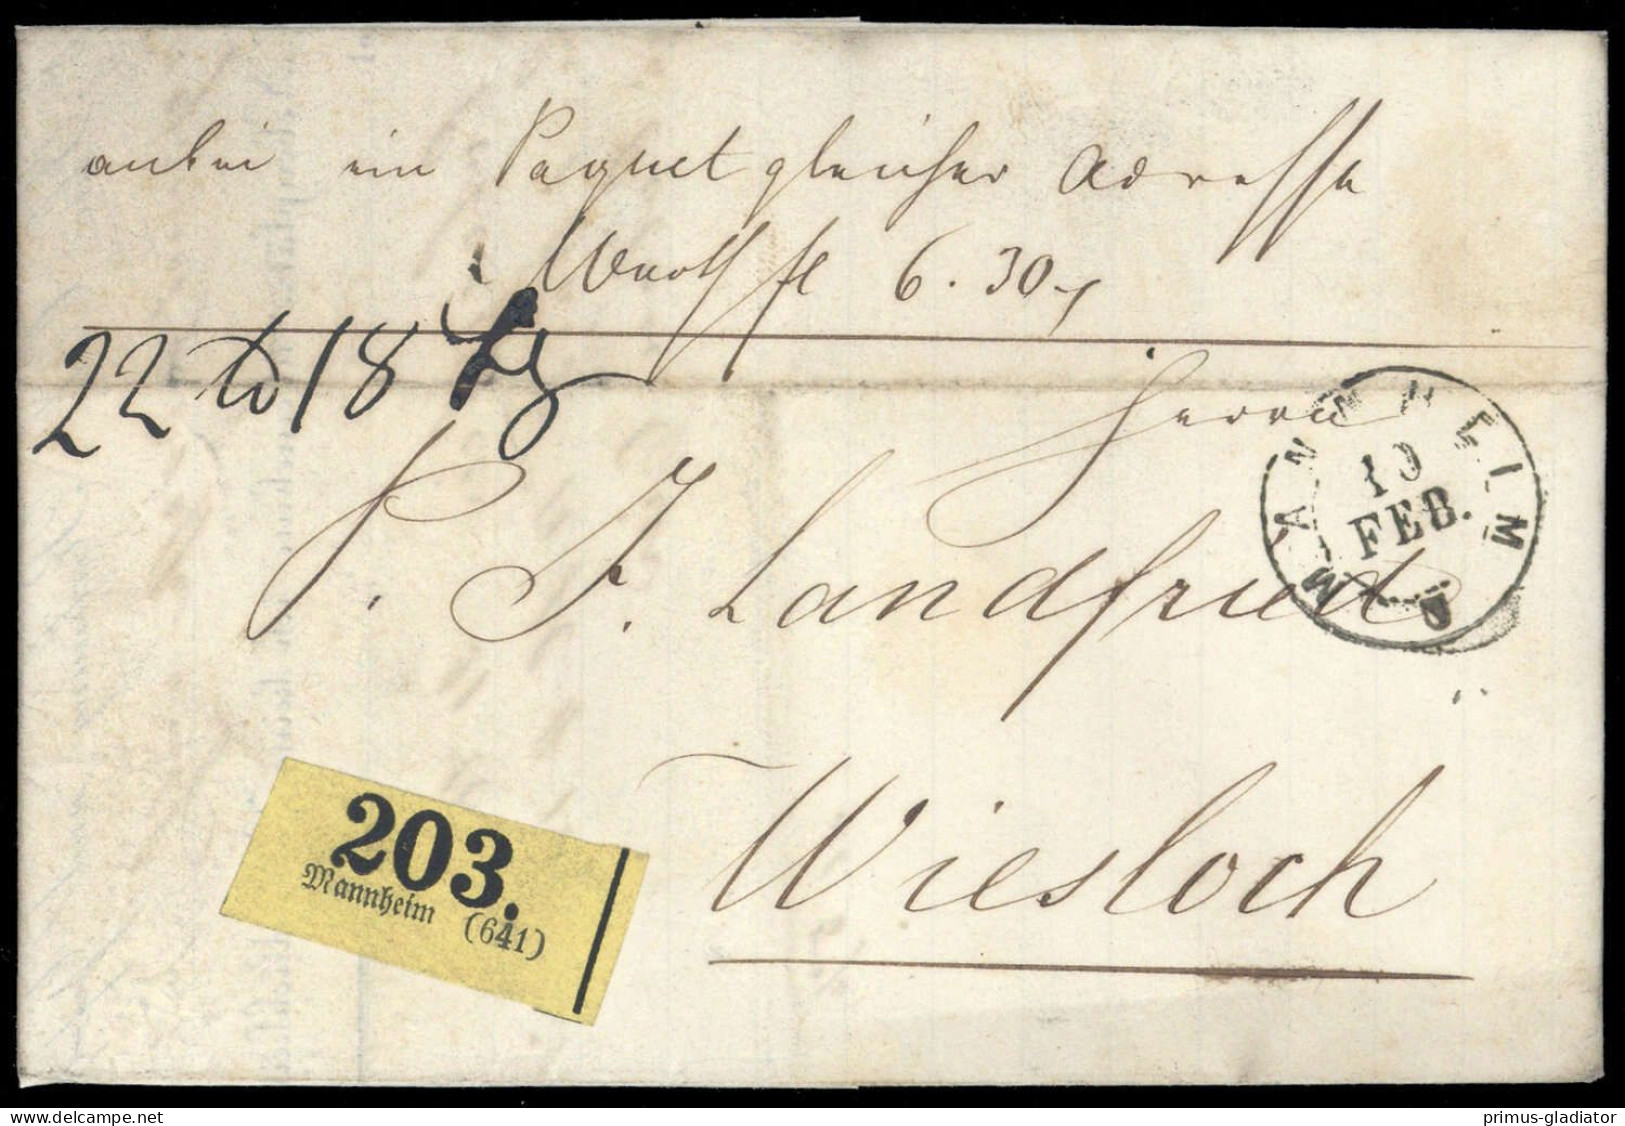 anbei ein Paquet gleicher Adresse
Werth fl 6.30
22 18
Herrn
MANNHEIM
10
FEB.
P. J. Landfried
Wiesloch
203.
Mannheim (641)
delcampe.net
primus-gladiator